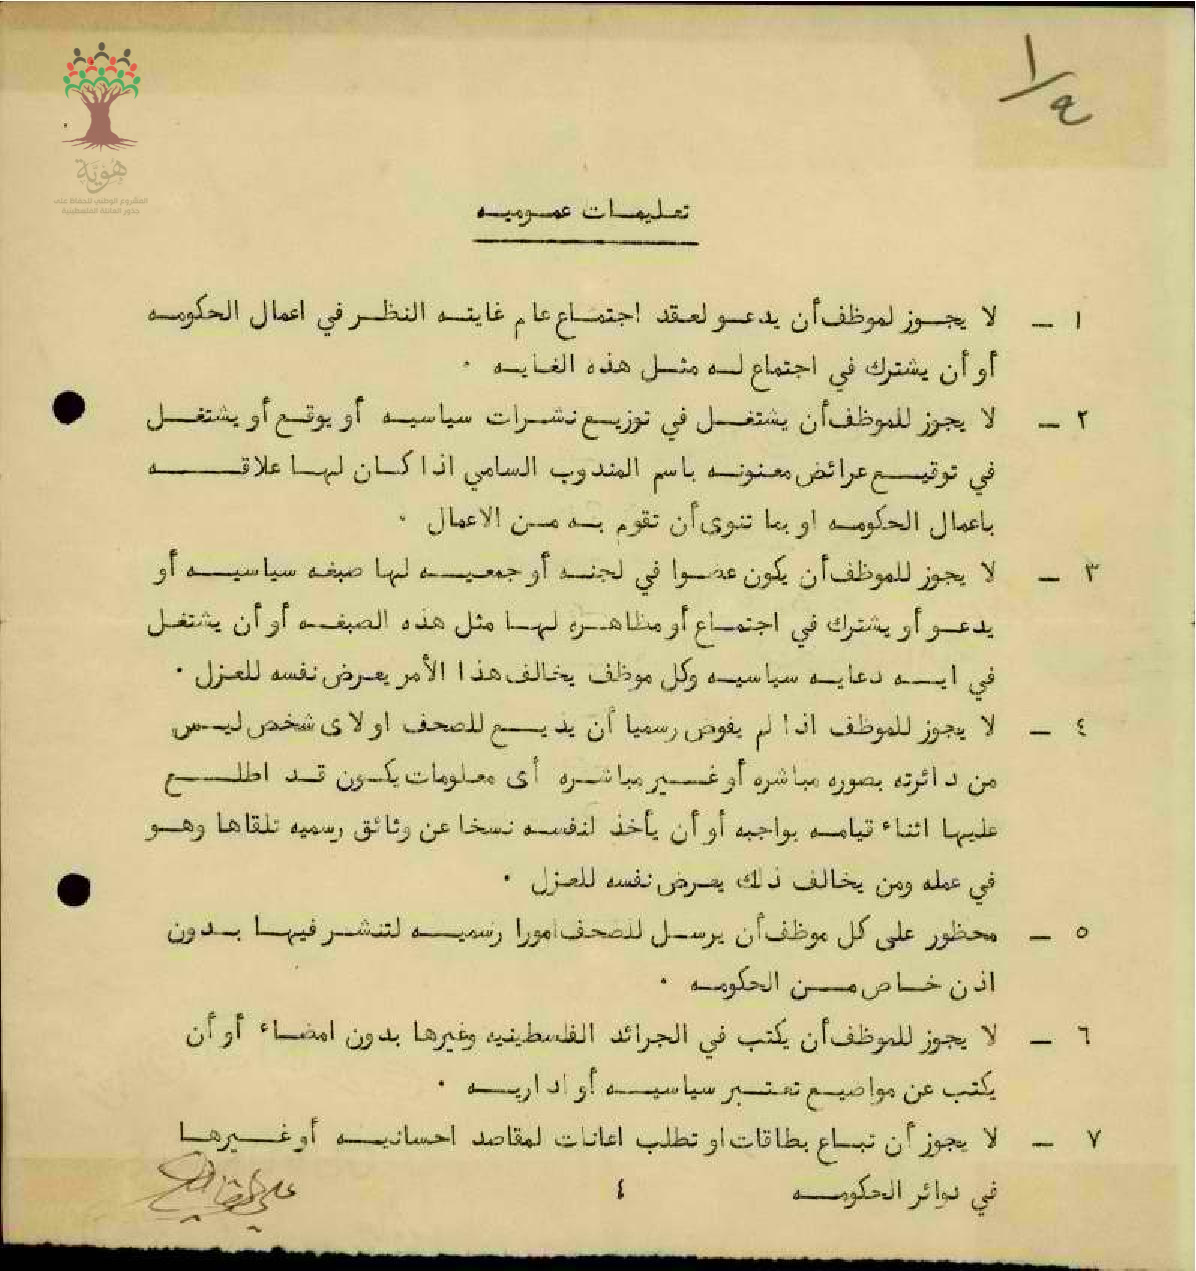 هُوِيَّة
المشروع الوطني للحفاظ على
جذور العائلة الفلسطينية
تعليمات عموميه
١ - لا يجوز لموظف أن يدعو لعقد اجتماع عام غايته النظر في اعمال الحكومه
أو أن يشترك في اجتماع له مثل هذه الغايه ٠
٢ - لا يجوز للموظف أن يشتغل في توزيع نشرات سياسيه أو يوقع أو يشتغل
في توقيع عرائض معنونه باسم المندوب السامي اذا كان لها علاقه
باعمال الحكومه او بما تنوى أن تقوم به من الاعمال ٠
٣ - لا يجوز للموظف أن يكون عضوا في لجنه أو جمعيه لها صبغه سياسيه أو
يدعو أو يشترك في اجتماع أو مظاهره لها مثل هذه الصبغه أو أن يشتغل
في ايه دعايه سياسيه وكل موظف يخالف هذا الأمر يعرض نفسه للعزل ٠
٤ - لا يجوز للموظف اذا لم يفوض رسميا أن يذيع للصحف او لاى شخص ليس
من دائرته بصوره مباشره أو غير مباشره أى معلومات يكون قد اطلع
عليها اثناء قيامه بواجبه أو أن يأخذ لنفسه نسخا عن وثائق رسميه تلقاها وهو
في عمله ومن يخالف ذلك يعرض نفسه للعزل ٠
٥ - محظور على كل موظف أن يرسل للصحف امورا رسميه لتنشر فيها بدون
اذن خاص من الحكومه ٠
٦ - لا يجوز للموظف أن يكتب في الجرائد الفلسطينيه وغيرها بدون امضاء أو أن
يكتب عن مواضيع تعتبر سياسيه أو اداريه ٠
٧ - لا يجوز أن تباع بطاقات او تطلب اعانات لمقاصد احسانيه أو غيرها
في دوائر الحكومه ٤